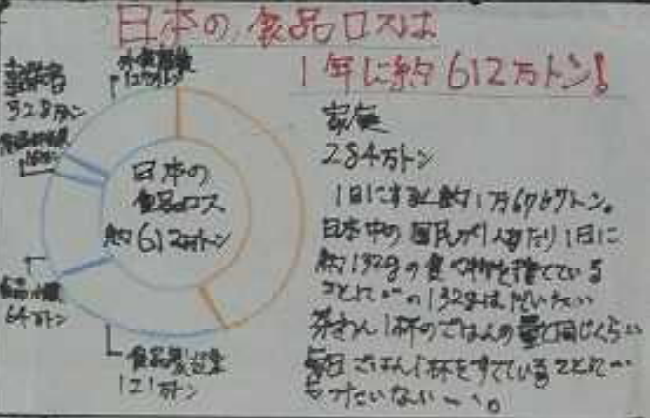 日本の食品ロスは
1年に約612万トン!
事業者
328万トン
外食産業
127万トン
日本の
食品ロス
約612万トン
64万トン
食品製造業
121万トン
家庭
284万トン
1日にすると約1万6767トン。
日本中の国民が1人当たり1日に
約132gの食べ物を捨てている
ことに…この132gはだいたい
茶わん1杯のごはんの量と同じくらい
毎日ごはん1杯をすてていることに…
もったいない…。